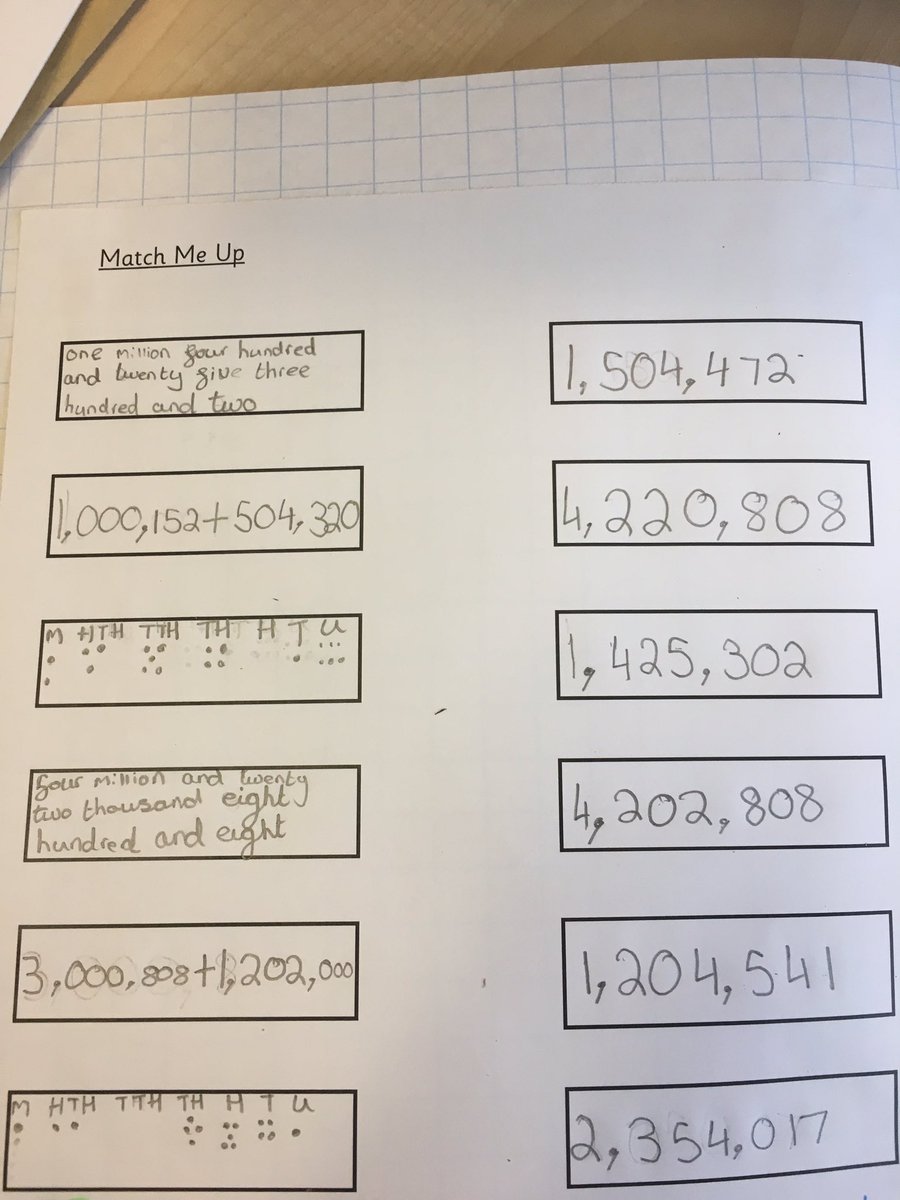 Match Me Up
one million four hundred
and twenty five three
hundred and two
1,504,472
1,000,152+504,320
4,220,808
M HTH TTH TH H T U
1,425,302
four million and twenty
two thousand eight
hundred and eight
4,202,808
3,000,808+1,202,000
1,204,541
M HTH TTH TH H T U
2,354,017